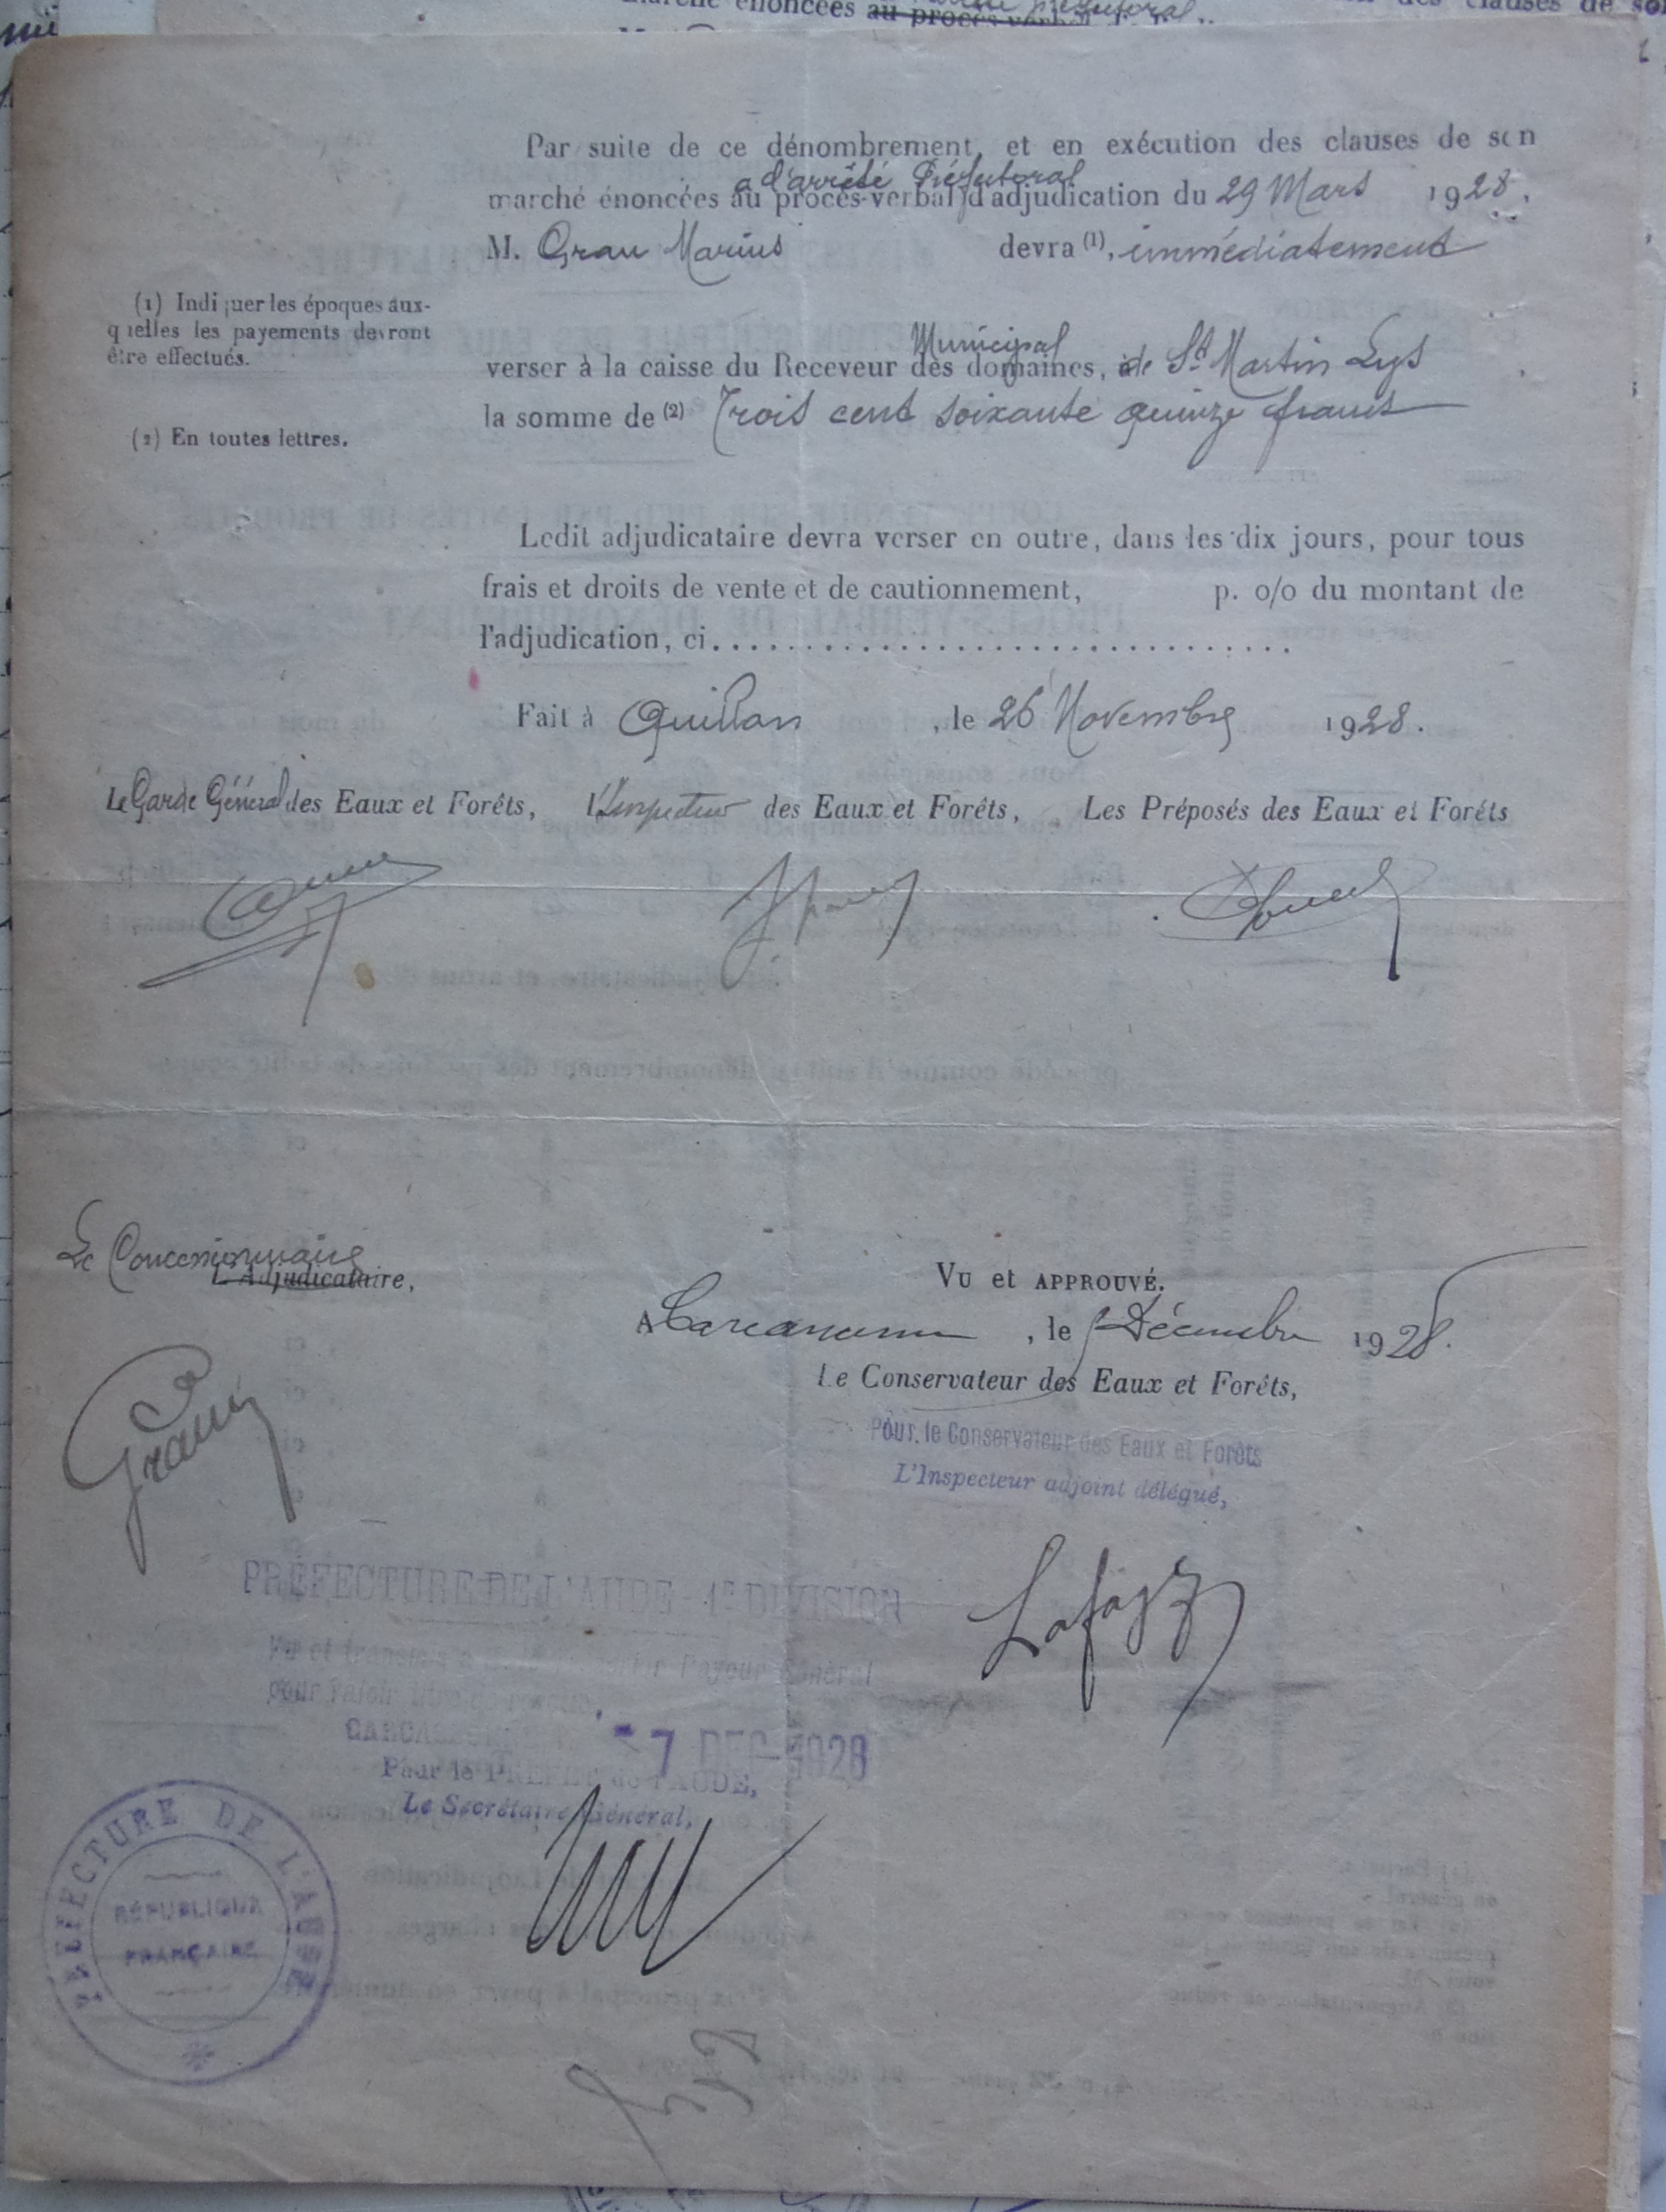 Par suite de ce dénombrement, et en exécution des clauses de son
a d'arrêté Préfectoral
marché énoncées au procès-verbal d'adjudication du 29 Mars 1928.
M. Grau Marius devra (1), immédiatement
(1) Indiquer les époques aux-
quelles les payements devront
être effectués.
Municipal
verser à la caisse du Receveur des domaines, de St Martin Lys
la somme de (2) Trois cent soixante quinze francs
(2) En toutes lettres.
Ledit adjudicataire devra verser en outre, dans les dix jours, pour tous
frais et droits de vente et de cautionnement, p. o/o du montant de
l'adjudication, ci..................................
Fait à Quillan, le 26 Novembre 1928.
Le Garde Général des Eaux et Forêts, L'Inspecteur des Eaux et Forêts, Les Préposés des Eaux et Forêts
Le Concessionnaire
L'Adjudicataire,
Grau
VU et APPROUVÉ.
A Carcassonne, le Décembre 1928.
Le Conservateur des Eaux et Forêts,
Pour le Conservateur des Eaux et Forêts
L'Inspecteur adjoint délégué,
PRÉFECTURE DE L'AUDE - 1e DIVISION
Vu et transmis à Payeur Général
pour valoir titre de
CARCASSONNE
-7 DEC 1928
Pour le PRÉFET de l'AUDE,
Le Secrétaire Général,
PRÉFECTURE DE L'AUDE
RÉPUBLIQUE
FRANÇAISE